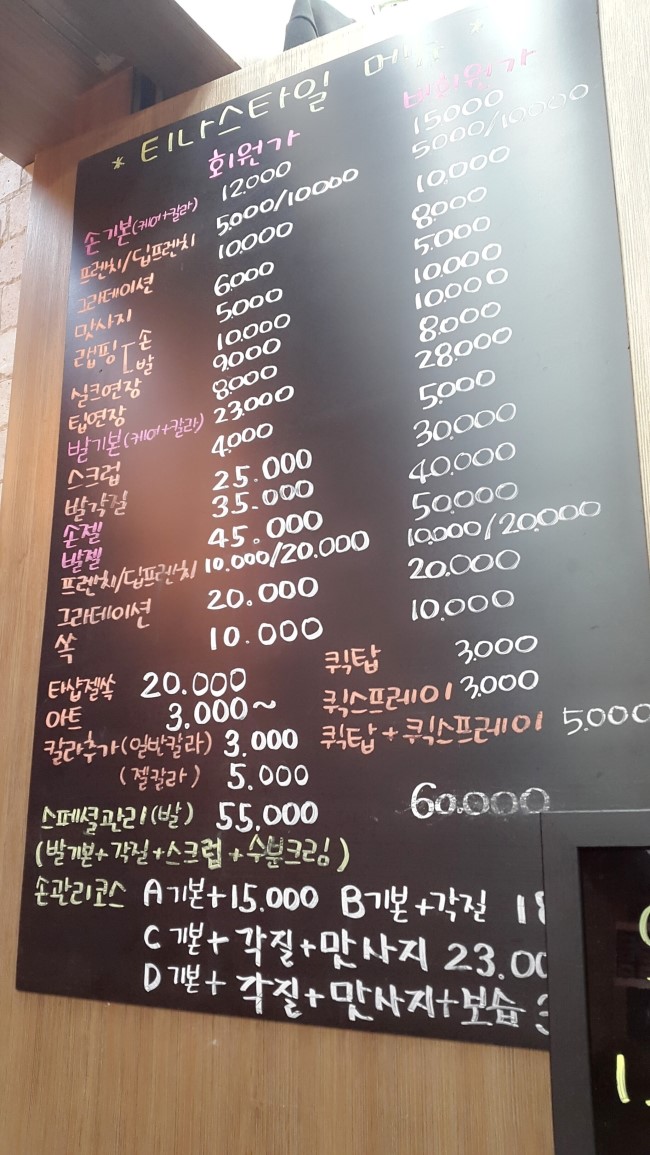 * 티나스타일 메뉴 *
회원가 비회원가
손기본(케어+칼라) 12.000 15000
프렌치/딥프렌치 5.000/10000 5000/10000
그라데이션 10.000 10.000
맛사지 6.000 8.000
랩핑 [ 손 5.000 5.000
발 10.000 10.000
실크연장 9.000 10.000
팁연장 8.000 8.000
발기본(케어+칼라) 23.000 28.000
스크럽 4.000 5.000
발각질 25.000 30.000
손젤 35.000 40.000
발젤 45.000 50.000
프렌치/딥프렌치 10.000/20.000 10.000/20.000
그라데이션 20.000 20.000
쏙 10.000 10.000
타샵젤쏙 20.000 퀵탑 3.000
아트 3.000~ 퀵스프레이 3.000
칼라추가(일반칼라) 3.000 퀵탑+퀵스프레이 5.000
(젤칼라) 5.000
스페셜관리(발) 55.000 60.000
(발기본+각질+스크럽+수분크림)
손관리코스 A기본+15.000 B기본+각질 18
C 기본+각질+맛사지 23.00
D 기본+각질+맛사지+보습 3